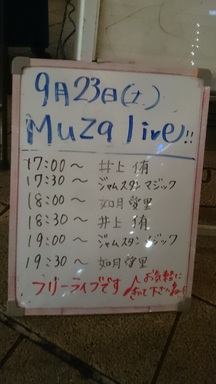 9月23日(土)
Muza live!!
17:00〜 井上 侑
17:30〜 ジャムスタンマジック
18:00〜 如月愛里
18:30〜 井上 侑
19:00〜 ジャムスタンマジック
19:30〜 如月愛里
フリーライブです
お気軽に
きいて下さいね!!